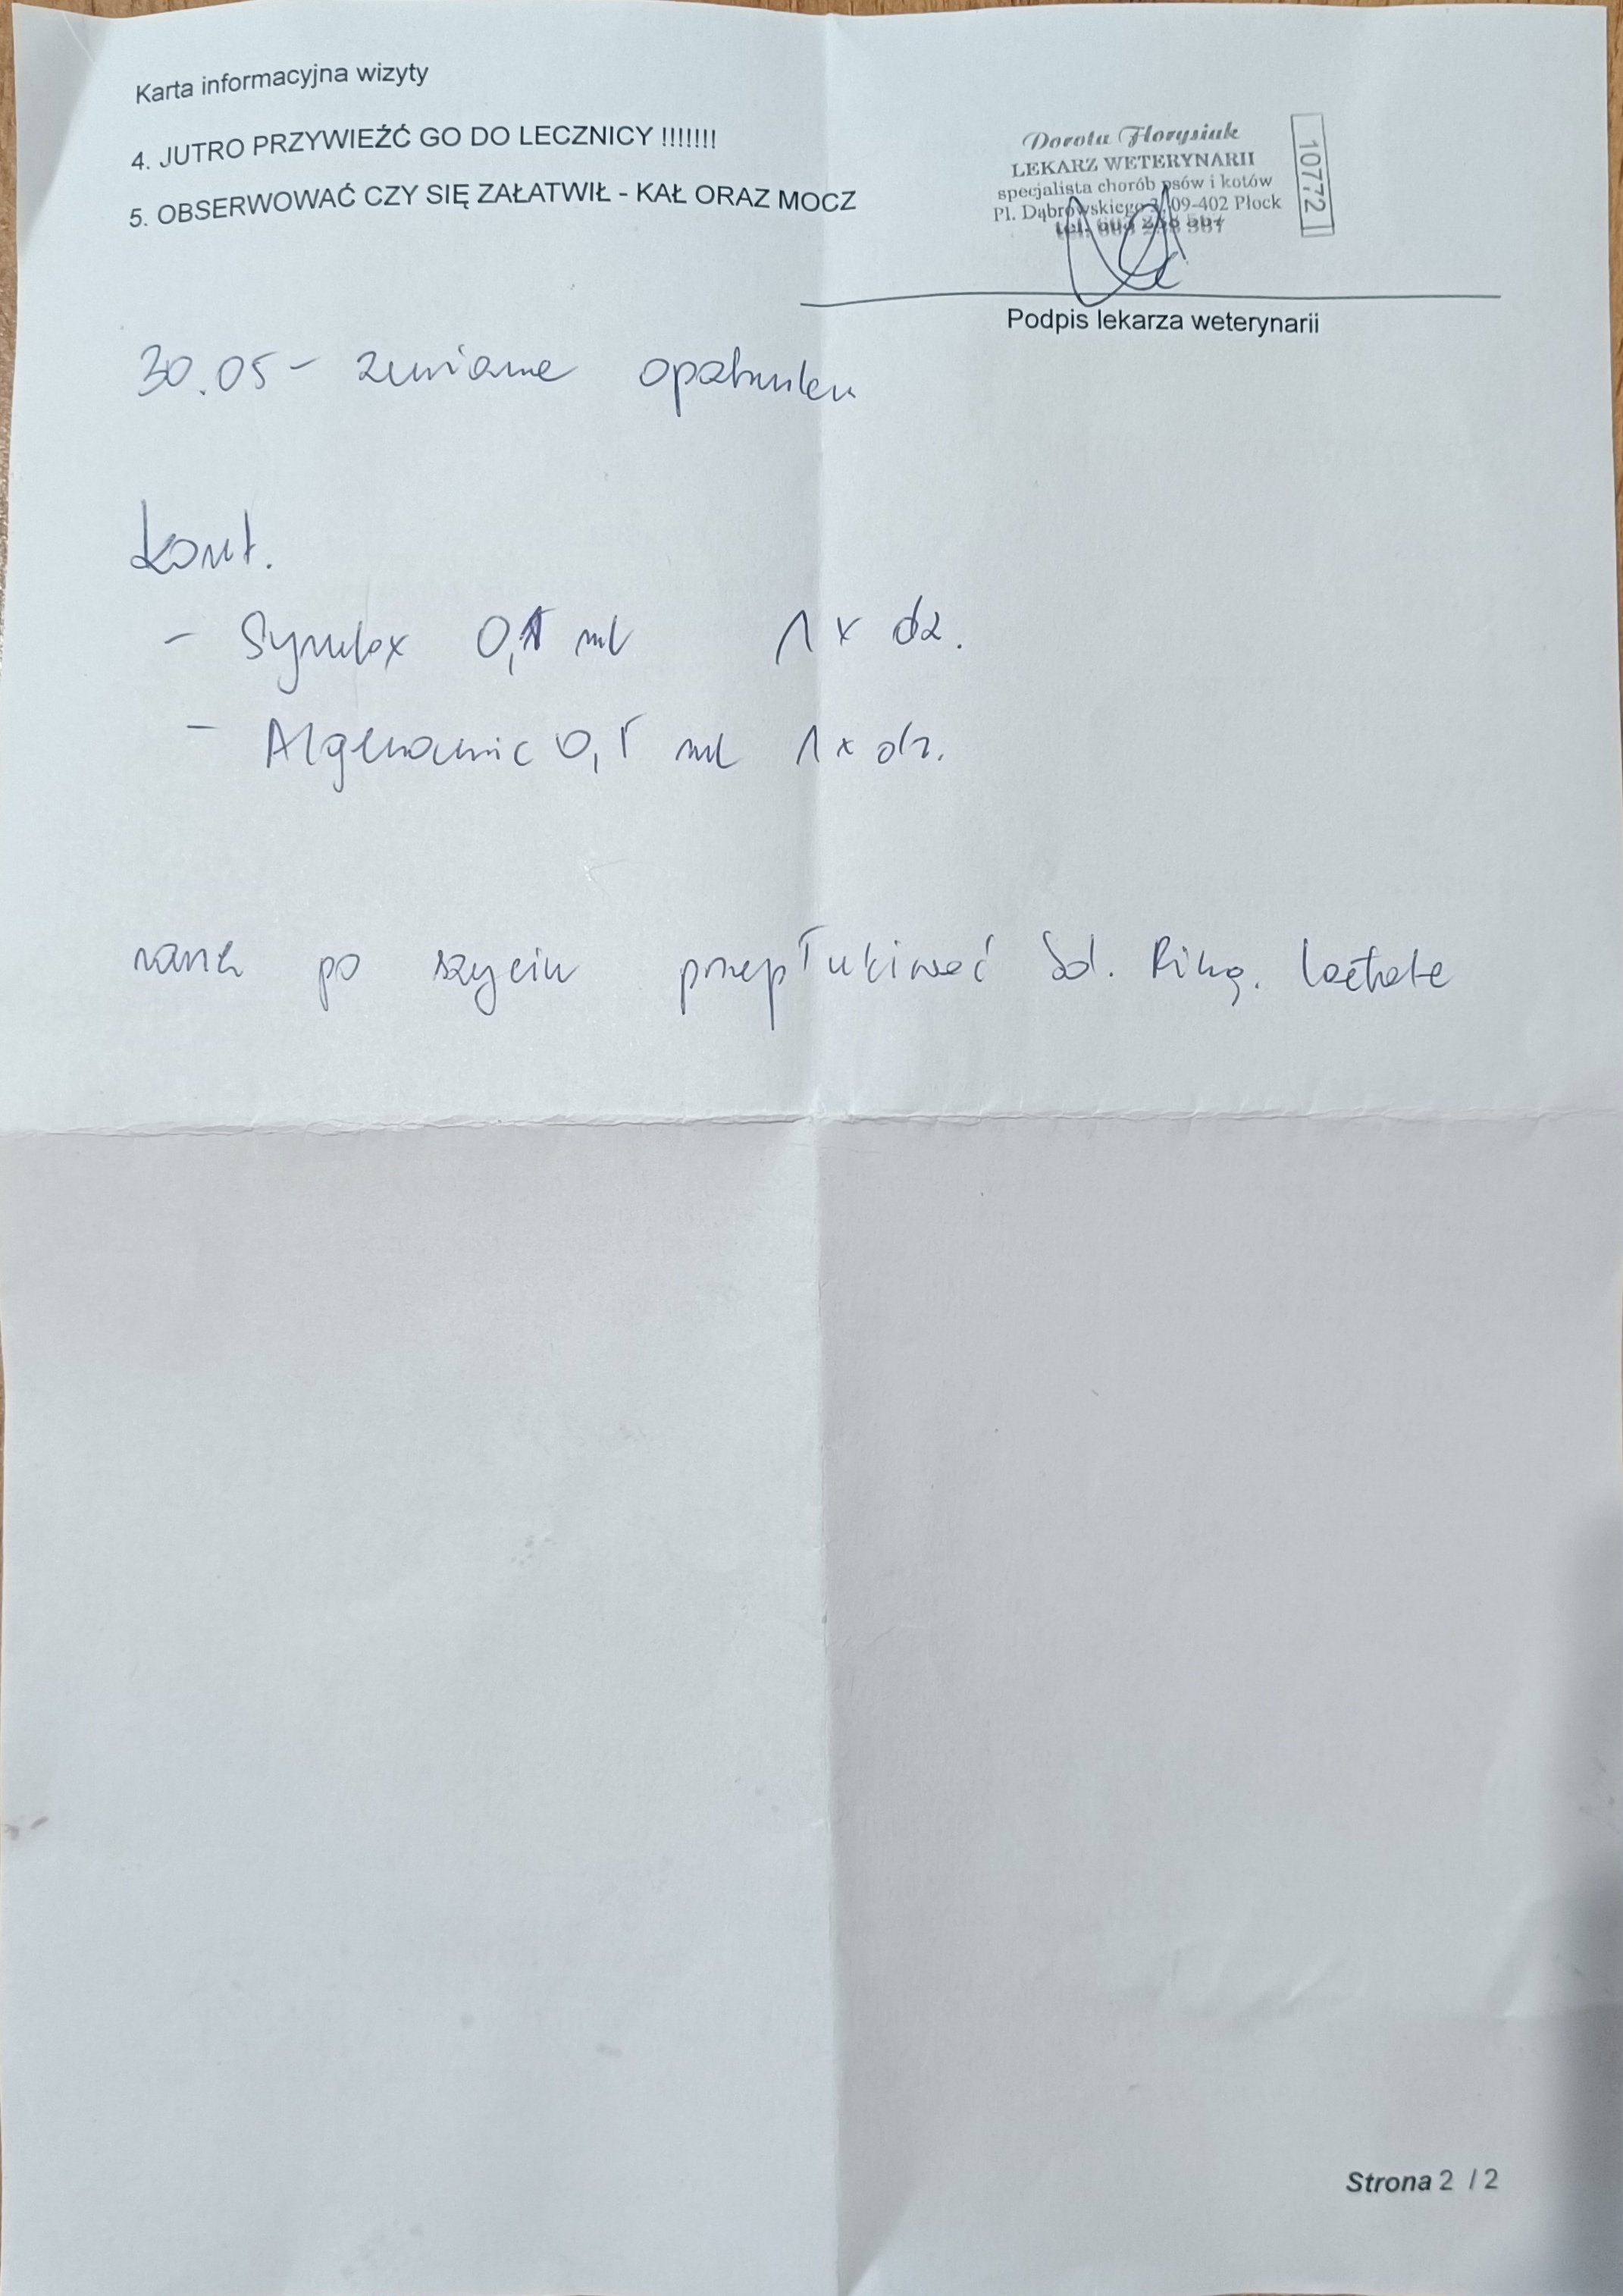 Karta informacyjna wizyty
4. JUTRO PRZYWIEŹĆ GO DO LECZNICY !!!!!!!
5. OBSERWOWAĆ CZY SIĘ ZAŁATWIŁ - KAŁ ORAZ MOCZ
Dorota Florysiak
LEKARZ WETERYNARII
specjalista chorób psów i kotów
Pl. Dąbrowskiego 09-402 Płock
tel.
10772
Podpis lekarza weterynarii
30.05 - zmiana opatrunku
kont.
- Synulox ml 1 x dz.
- ml 1 x dz.
po szyciu przepłukiwać Sol. Ring. lactate
Strona 2 / 2